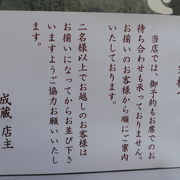 当店では、御予約もお席でのお
待ち合わせも承っておりません。
お揃いのお客様から順にご案内
いたしております。
二名様以上でお越しのお客様は
お揃いになってからお並び下さ
いますようご協力お願いいたし
ます。
成蔵 店主